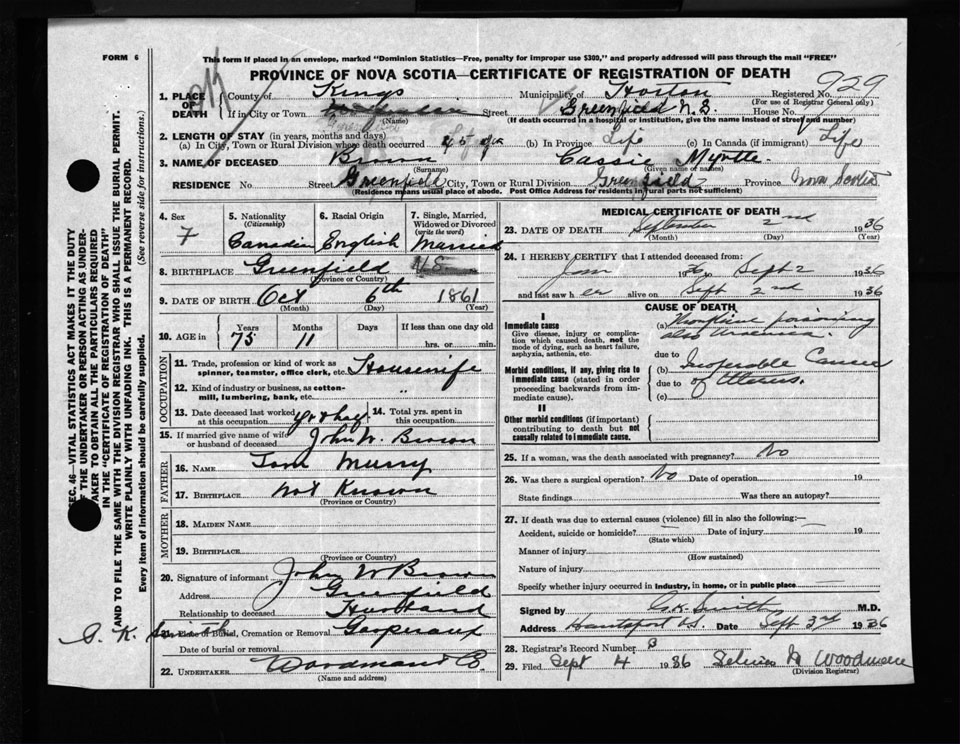 FORM 6
This form if placed in an envelope, marked "Dominion Statistics—Free, penalty for improper use $300," and properly addressed will pass through the mail "FREE"
PROVINCE OF NOVA SCOTIA—CERTIFICATE OF REGISTRATION OF DEATH
929
1. PLACE OF DEATH
County of Kings Municipality of Horton Registered No.
(For use of Registrar General only)
If in City or Town (Name) Street Greenfield N.S. House No.
(If death occurred in a hospital or institution, give the name instead of street and number)
2. LENGTH OF STAY (in years, months and days)
(a) In City, Town or Rural Division where death occurred (b) In Province Life (c) In Canada (if immigrant) Life
3. NAME OF DECEASED Brown Cassie Myrtle
(Surname) (Given name or names)
RESIDENCE No. Street Greenfield City, Town or Rural Division Greenfield Province Nova Scotia
(Residence means usual place of abode. Post Office Address for residents in rural parts not sufficient)
4. Sex F
5. Nationality (Citizenship) Canadian
6. Racial Origin English
7. Single, Married, Widowed or Divorced (write the word) Married
8. BIRTHPLACE Greenfield N.S.
(Province or Country)
9. DATE OF BIRTH Oct 6th 1861
(Month) (Day) (Year)
10. AGE in Years Months Days If less than one day old
75 11 hrs. or min.
OCCUPATION
11. Trade, profession or kind of work as spinner, teamster, office clerk, etc. Housewife
12. Kind of industry or business, as cotton-mill, lumbering, bank, etc. "
13. Date deceased last worked at this occupation
14. Total yrs. spent in this occupation
15. If married give name of wife or husband of deceased John W. Brown
FATHER
16. NAME Tom Murry
17. BIRTHPLACE Not Known
(Province or Country)
MOTHER
18. MAIDEN NAME
19. BIRTHPLACE
(Province or Country)
20. Signature of informant John W Brown
Address Greenfield
Relationship to deceased Husband
G. K. Smith
21. Place of Burial, Cremation or Removal Gaspereaux
Date of burial or removal
22. UNDERTAKER Woodmans Co.
(Name and address)
MEDICAL CERTIFICATE OF DEATH
23. DATE OF DEATH September 2nd 1936
(Month) (Day) (Year)
24. I HEREBY CERTIFY that I attended deceased from:
Jan 1936 to Sept 2 1936
and last saw her alive on Sept 2nd 1936
CAUSE OF DEATH
I
Immediate cause
Give disease, injury or complication which caused death, not the mode of dying, such as heart failure, asphyxia, asthenia, etc.
(a) poisoning
also Uraemia.
due to
Morbid conditions, if any, giving rise to immediate cause (stated in order proceeding backwards from immediate cause).
(b) Inoperable Cancer
due to of Uterus.
(c)
II
Other morbid conditions (if important) contributing to death but not causally related to immediate cause.
25. If a woman, was the death associated with pregnancy? No
26. Was there a surgical operation? No Date of operation 19
State findings Was there an autopsy?
27. If death was due to external causes (violence) fill in also the following:—
Accident, suicide or homicide? — Date of injury 19
(State which)
Manner of injury
(How sustained)
Nature of injury
Specify whether injury occurred in industry, in home, or in public place
Signed by G.K. Smith M.D.
Address Hantsport N.S. Date Sept 3rd 1936
28. Registrar's Record Number 8
29. Filed Sept 4 1936 Woodman
(Division Registrar)
SEC. 46—VITAL STATISTICS ACT MAKES IT THE DUTY
OF THE UNDERTAKER OR PERSON ACTING AS UNDER-
TAKER TO OBTAIN ALL THE PARTICULARS REQUIRED
IN THE "CERTIFICATE OF REGISTRATION OF DEATH"
AND TO FILE THE SAME WITH THE DIVISION REGISTRAR WHO SHALL ISSUE THE BURIAL PERMIT.
WRITE PLAINLY WITH UNFADING INK. THIS IS A PERMANENT RECORD.
Every item of information should be carefully supplied. (See reverse side for instructions.)